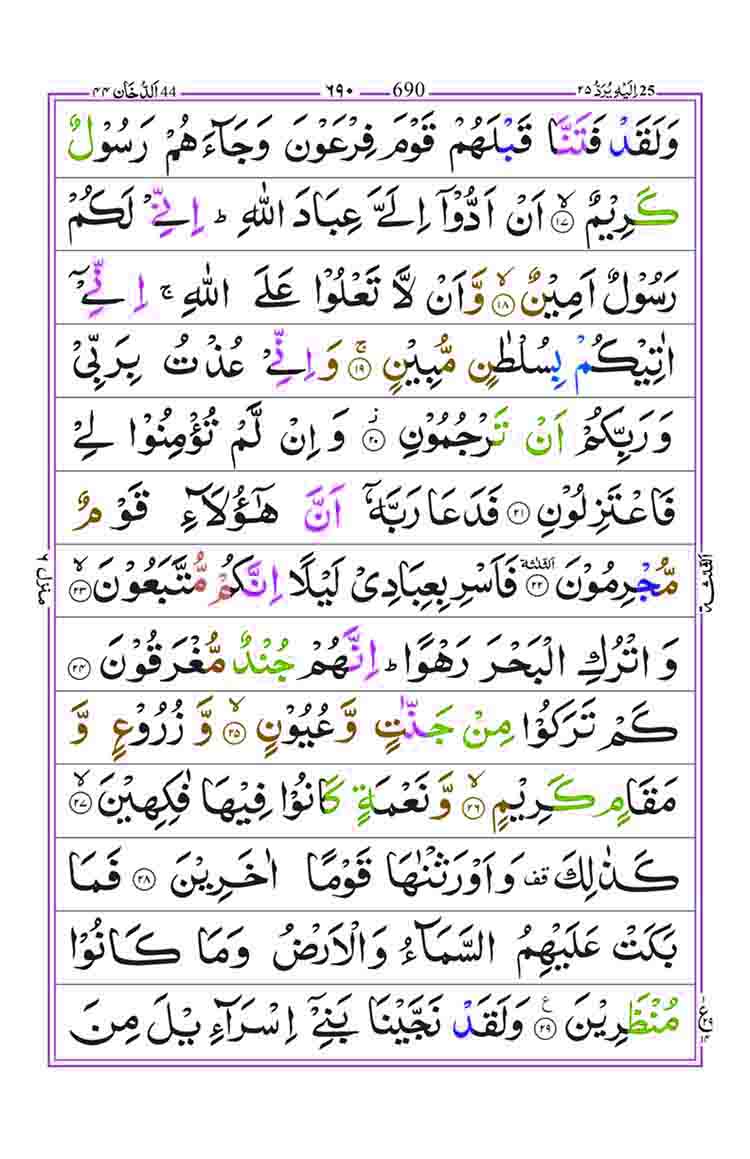 25 اِلَيْهِ يُرَدُّ ٢٥ 690 ٦٩٠ 44 اَلدُّخَان ٤٤
وَلَقَدْ فَتَنَّا قَبْلَهُمْ قَوْمَ فِرْعَوْنَ وَجَآءَهُمْ رَسُوْلٌ
كَرِيْمٌ ۙ‏﴿۱۷﴾ اَنْ اَدُّوْۤا اِلَىَّ عِبَادَ اللّٰهِ‌ؕ اِنِّىْ لَكُمْ
رَسُوْلٌ اَمِيْنٌ ۙ‏﴿۱۸﴾ وَّاَنْ لَّا تَعْلُوْا عَلَى اللّٰهِ‌ۚ اِنِّىْۤ
اٰتِيْكُمْ بِسُلْطٰنٍ مُّبِيْنٍ‌ۚ‏﴿۱۹﴾ وَاِنِّىْ عُذْتُ بِرَبِّىْ
وَرَبِّكُمْ اَنْ تَرْجُمُوْنِ ز‏﴿۲۰﴾ وَاِنْ لَّمْ تُؤْمِنُوْا لِىْ
فَاعْتَزِلُوْنِ‏﴿۲۱﴾ فَدَعَا رَبَّهٗۤ اَنَّ هٰٓؤُلَاۤءِ قَوْمٌ
مُّجْرِمُوْنَ الثلثة‏﴿۲۲﴾ فَاَسْرِ بِعِبَادِىْ لَيْلًا اِنَّكُمْ مُّتَّبَعُوْنَۙ‏﴿۲۳﴾
وَاتْرُكِ الْبَحْرَ رَهْوًا‌ؕ اِنَّهُمْ جُنْدٌ مُّغْرَقُوْنَ‏﴿۲۴﴾
كَمْ تَرَكُوْا مِنْ جَنّٰتٍ وَّعُيُوْنٍۙ‏﴿۲۵﴾ وَّزُرُوْعٍ وَّ
مَقَامٍ كَرِيْمٍۙ‏﴿۲۶﴾ وَّنَعْمَةٍ كَانُوْا فِيْهَا فٰكِهِيْنَۙ‏﴿۲۷﴾
كَذٰلِكَ قف وَاَوْرَثْنٰهَا قَوْمًا اٰخَرِيْنَ‏﴿۲۸﴾ فَمَا
بَكَتْ عَلَيْهِمُ السَّمَآءُ وَالْاَرْضُ وَمَا كَانُوْا
مُنْظَرِيْنَ ع‏﴿۲۹﴾ وَلَقَدْ نَجَّيْنَا بَنِىْۤ اِسْرَآءِيْلَ مِنَ
منزل ٦
الثلثة
ع ٢٩ ١٤